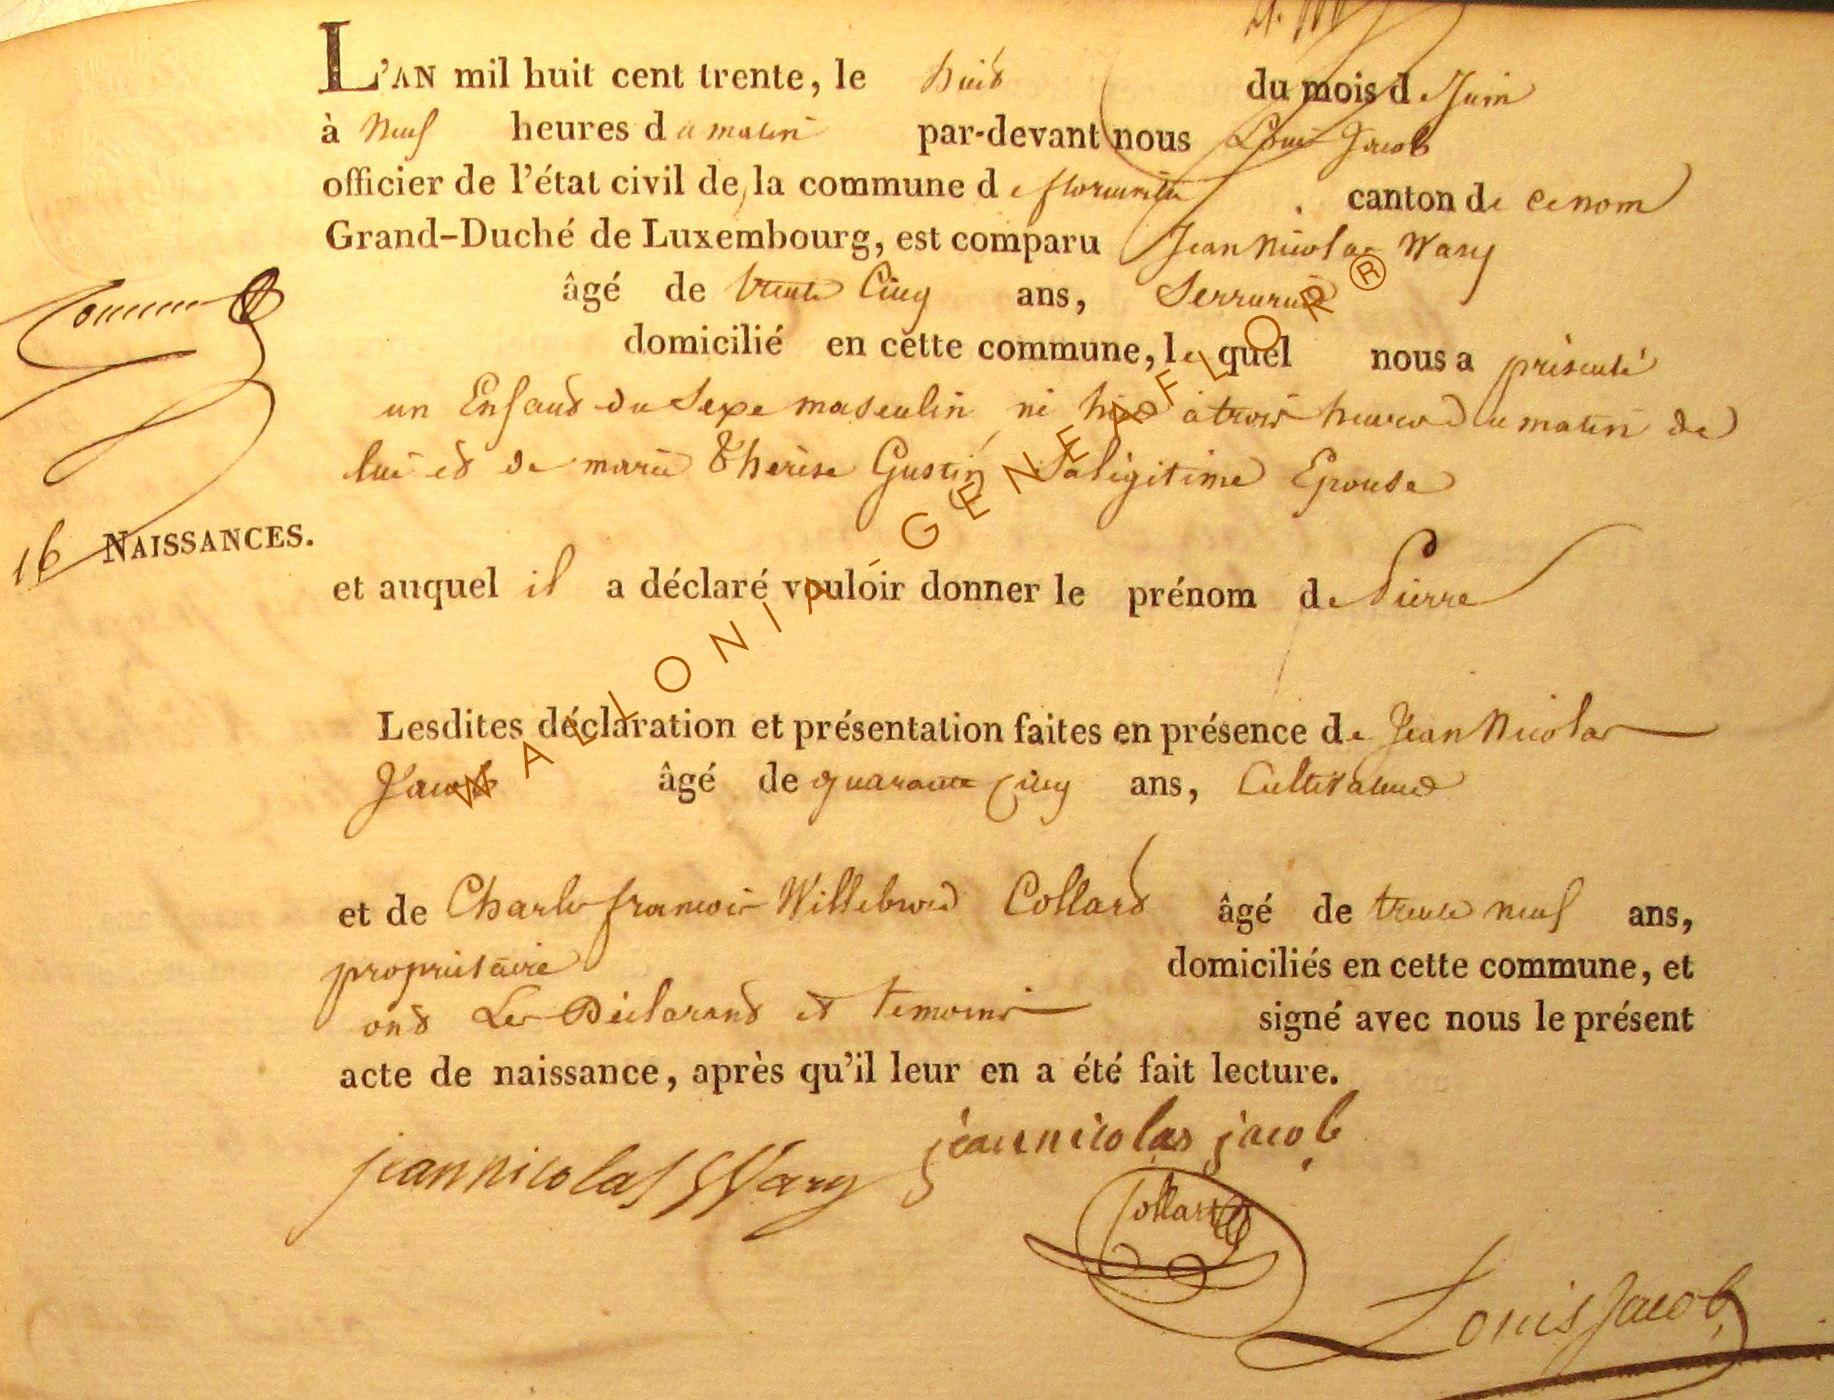 L'AN mil huit cent trente, le huit du mois de Juin
à neuf heures du matin par-devant nous Louis Jacob
officier de l'état civil de la commune de florenville canton de ce nom
Grand-Duché de Luxembourg, est comparu Jean Nicolas Wary
âgé de trente Cinq ans, Serrurier
domicilié en cette commune, le quel nous a présenté
un Enfant du Sexe masculin né hier à trois heures du matin de
lui et de marie Thérèse Gustin Sa légitime Epouse
16 NAISSANCES.
et auquel il a déclaré vouloir donner le prénom de Pierre
Lesdites déclaration et présentation faites en présence de Jean Nicolas
Jacob âgé de quarante cinq ans, Cultivateur
et de Charles françois Willebrord Collard âgé de trente neuf ans,
propriétaire domiciliés en cette commune, et
ont Les Déclarant et temoins signé avec nous le présent
acte de naissance, après qu'il leur en a été fait lecture.
jean nicolas Wary jean nicolas jacob
Collard
Louis Jacob
WALLONIA-GENEAFLOR®